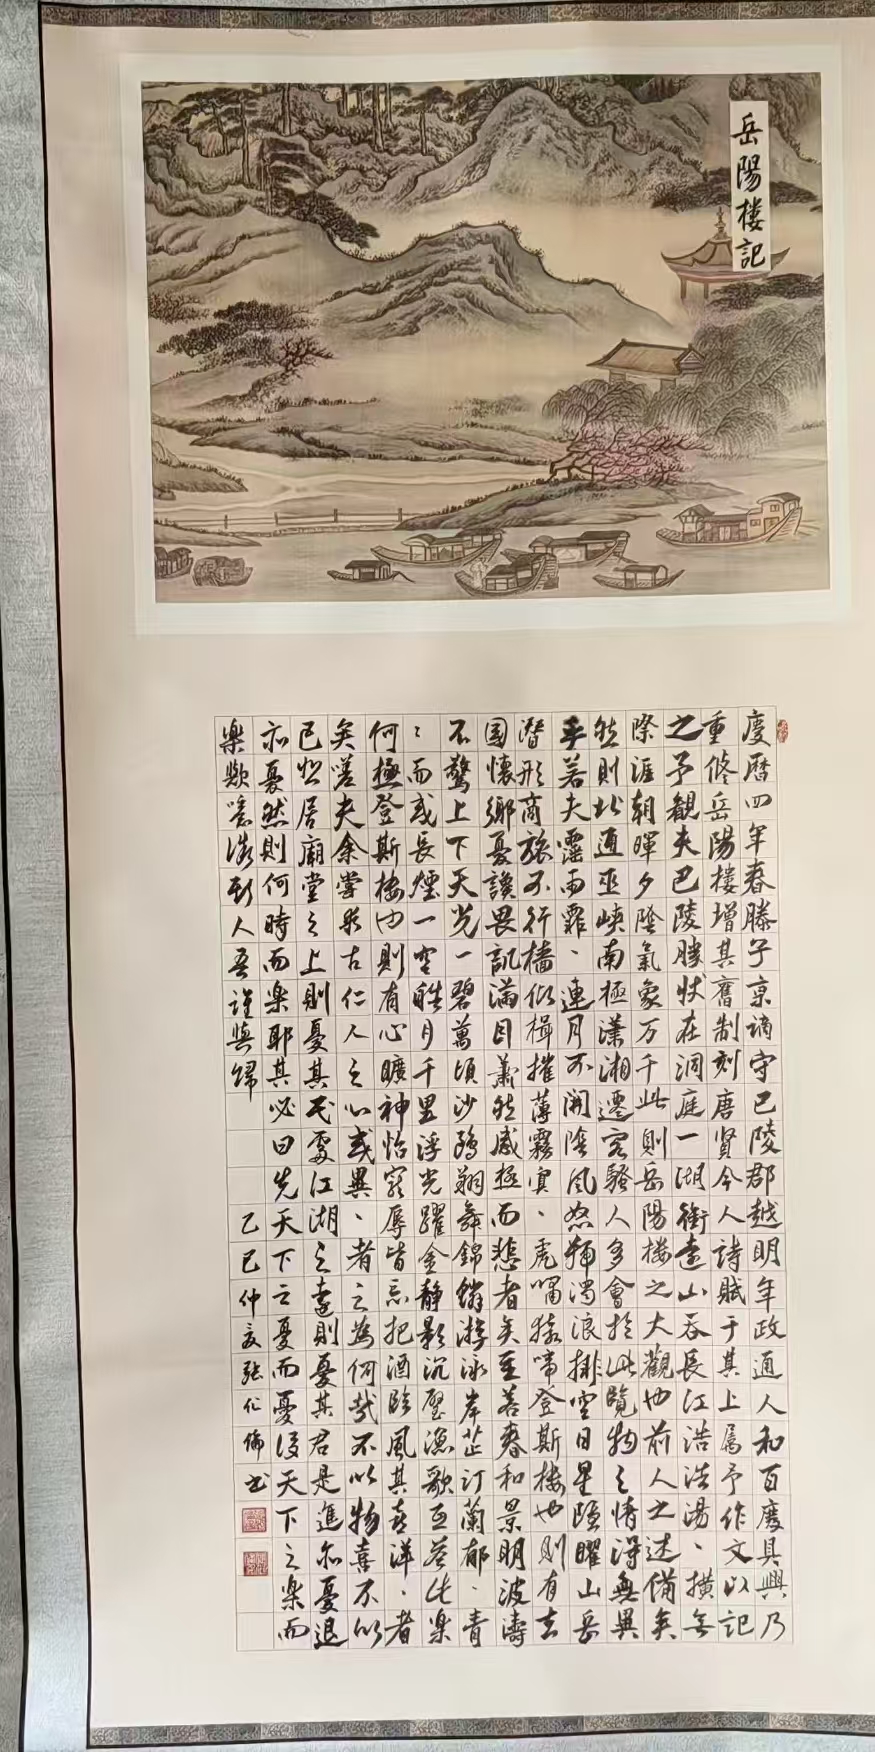 岳陽楼記
慶曆四年春滕子京謫守巴陵郡越明年政通人和百廢具興乃
重修岳陽楼增其舊制刻唐賢今人詩賦于其上属予作文以記
之予觀夫巴陵勝狀在洞庭一湖銜遠山吞長江浩浩湯、橫無
際涯朝暉夕陰氣象万千此則岳陽楼之大觀也前人之述備矣
然則北通巫峽南極瀟湘遷客騷人多會於此覽物之情得無異
乎若夫霪雨霏、連月不開陰風怒號濁浪排空日星隱曜山岳
潛形商旅不行檣傾楫摧薄霧冥、虎嘯猿啼登斯楼也則有去
国懷鄉憂讒畏譏滿目蕭然感極而悲者矣至若春和景明波濤
不驚上下天光一碧萬頃沙鷗翔舞錦鱗游泳岸芷汀蘭郁、青
、而或長煙一空皓月千里浮光躍金静影沉璧漁歌互答此樂
何極登斯楼也則有心曠神怡寵辱皆忘把酒臨風其喜洋、者
矣嗟夫余嘗求古仁人之心或異、者之為何哉不以物喜不以
己悲居廟堂之上則憂其民處江湖之遠則憂其君是進亦憂退
亦憂然則何時而樂耶其必曰先天下之憂而憂後天下之樂而
樂歟噫微斯人吾誰與歸
乙巳仲夏張仁倫書